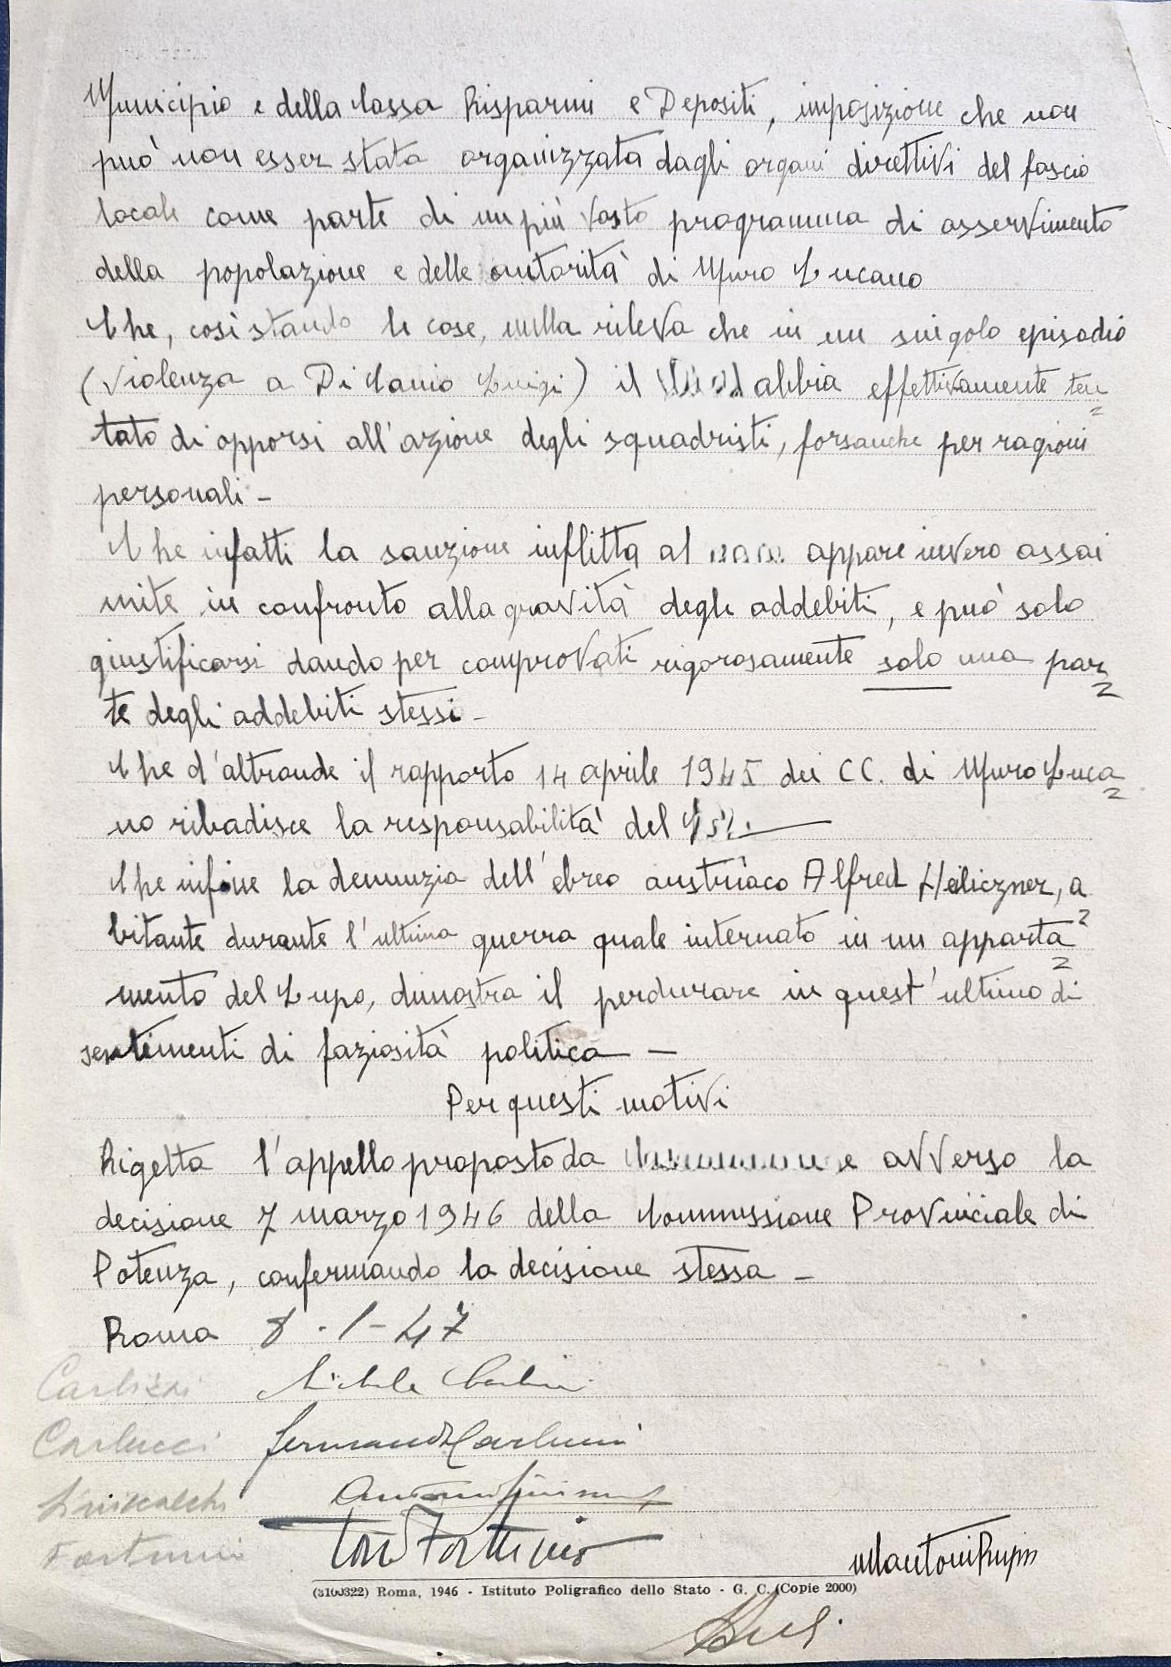 Municipio e della Cassa Risparmi e Depositi, imposizione che non
può non esser stata organizzata dagli organi direttivi del fascio
locale come parte di un più vasto programma di asservimento
della popolazione e delle autorità di Muro Lucano
Che, così stando le cose, nulla rileva che in un singolo episodio
(violenza a Di Canio Luigi) il abbia effettivamente ten
tato di opporsi all'azione degli squadristi, forsanche per ragioni
personali -
Che infatti la sanzione inflitta al appare invero assai
mite in confronto alla gravità degli addebiti, e può solo
giustificarsi dando per comprovati rigorosamente solo una par
te degli addebiti stessi -
Che d'altronde il rapporto 14 aprile 1945 dei CC. di Muro Luca
no ribadisce la responsabilità del
Che infine la denunzia dell'ebreo austriaco Alfred Heiliczner, a
bitante durante l'ultima guerra quale internato in un apparta
mento del Lupo, dimostra il perdurare in quest'ultimo di
sentimenti di faziosità politica -
Per questi motivi
Rigetta l'appello proposto da avverso la
decisione 7 marzo 1946 della Commissione Provinciale di
Potenza, confermando la decisione stessa -
Roma 8-1-47
Carlucci
Siniscalchi
(3100322) Roma, 1946 - Istituto Poligrafico dello Stato - G. C. (Copie 2000)